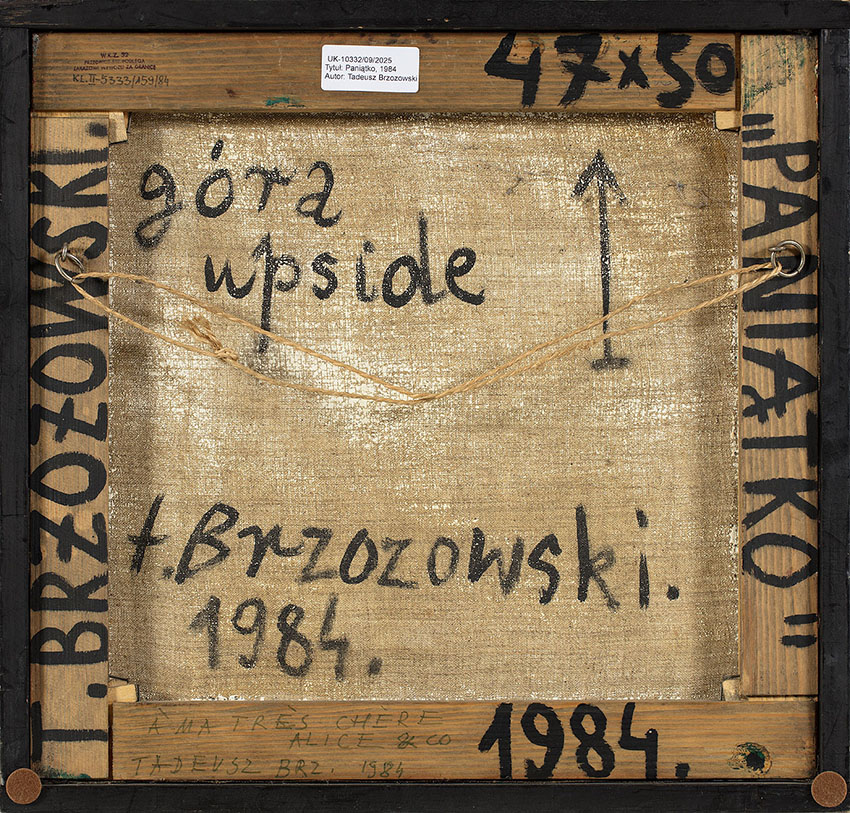 W.K.Z. 50
KL.II-5333/159/84
UK-10332/09/2025
Tytuł: Paniątko, 1984
Autor: Tadeusz Brzozowski
47x50
T. BRZOZOWSKI.
góra
upside
"PANIĄTKO"
t. Brzozowski.
1984.
À MA TRÈS CHÈRE
ALICE & CO
TADEUSZ BRZ. 1984
1984.